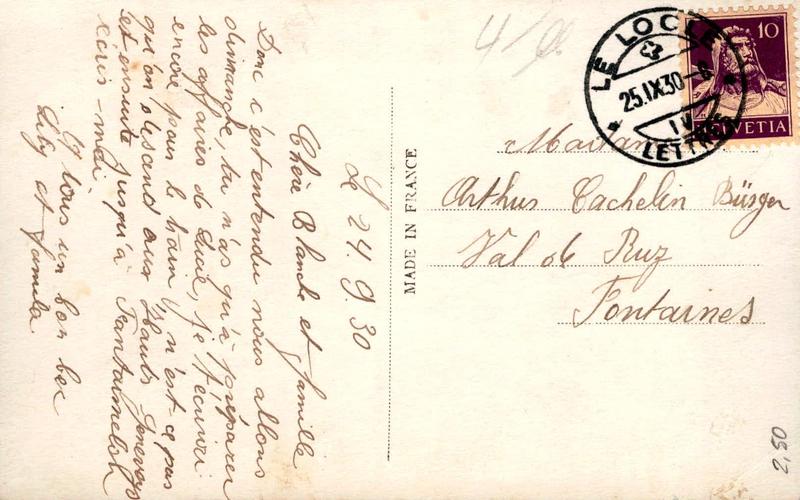 L 24.9.30
Chère Blanche et famille
Donc c'est entendu nous allons
dimanche, tu n'as qu'à préparer
les affaires de Lucie, je t'ecrirai
encore pour le train, n'est-ce pas
qu'on descend aux Hauts Geneveys
et ensuite jusqu'à Fontainemelon
écris-moi.
A tous un bon bec
Lily et famila.
4/
MADE IN FRANCE
LE LOCLE
25.IX.30-8
IV
LETTRES
10
HELVETIA
Madame
Arthur Cachelin Bürger
Val de Ruz
Fontaines
2.50